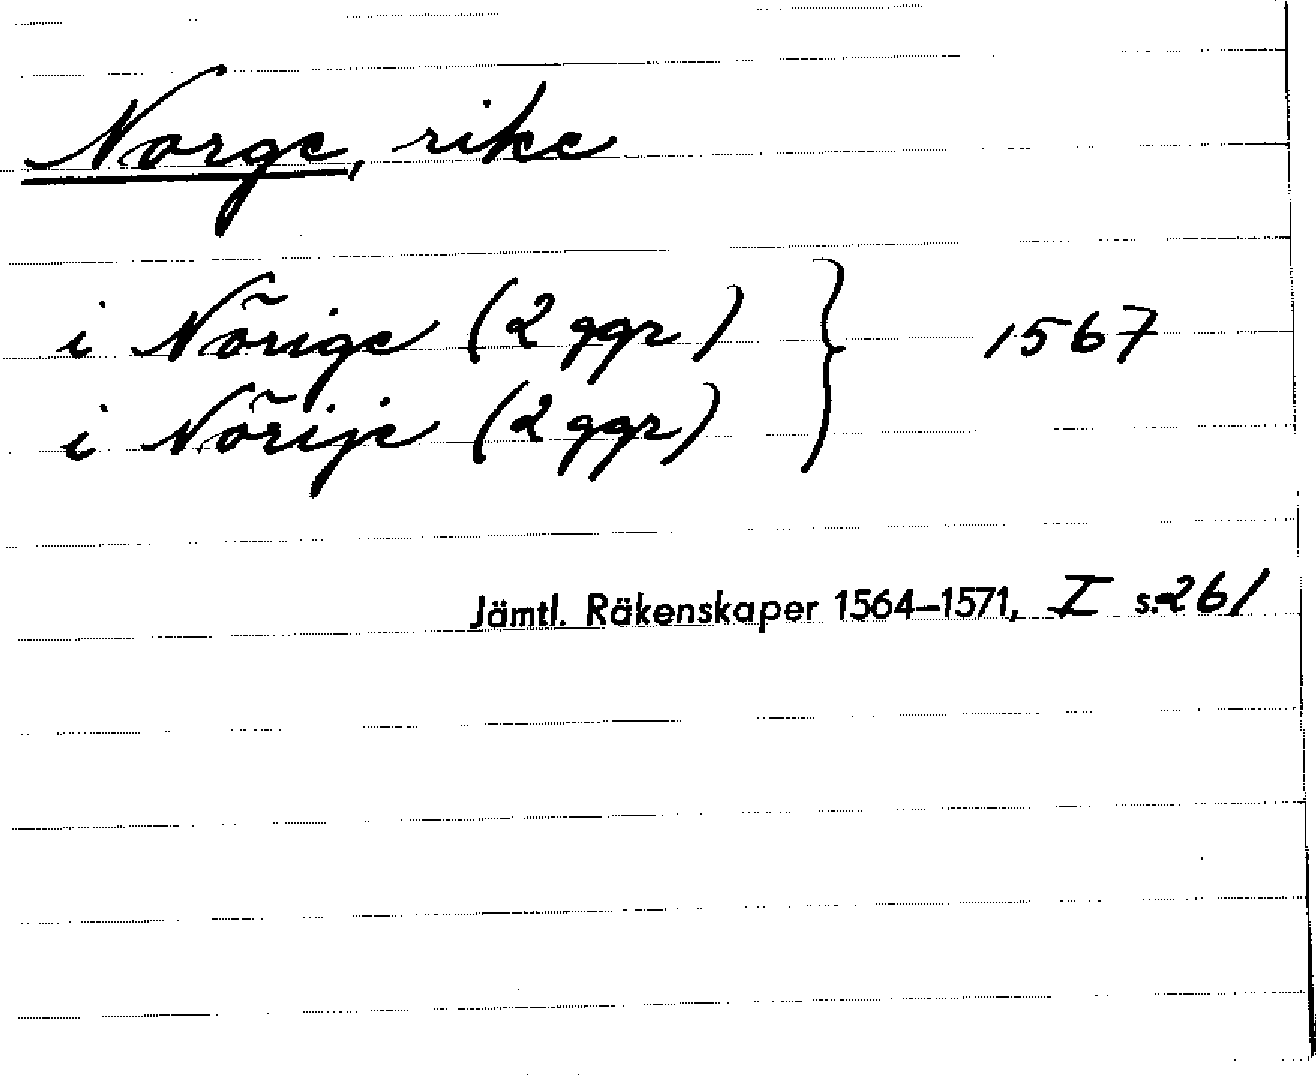 Norge, rike
i Nõrige (2 ggr) } 1567
i Nõrije (2 ggr)
Jämtl. Räkenskaper 1564–1571, I s. 261